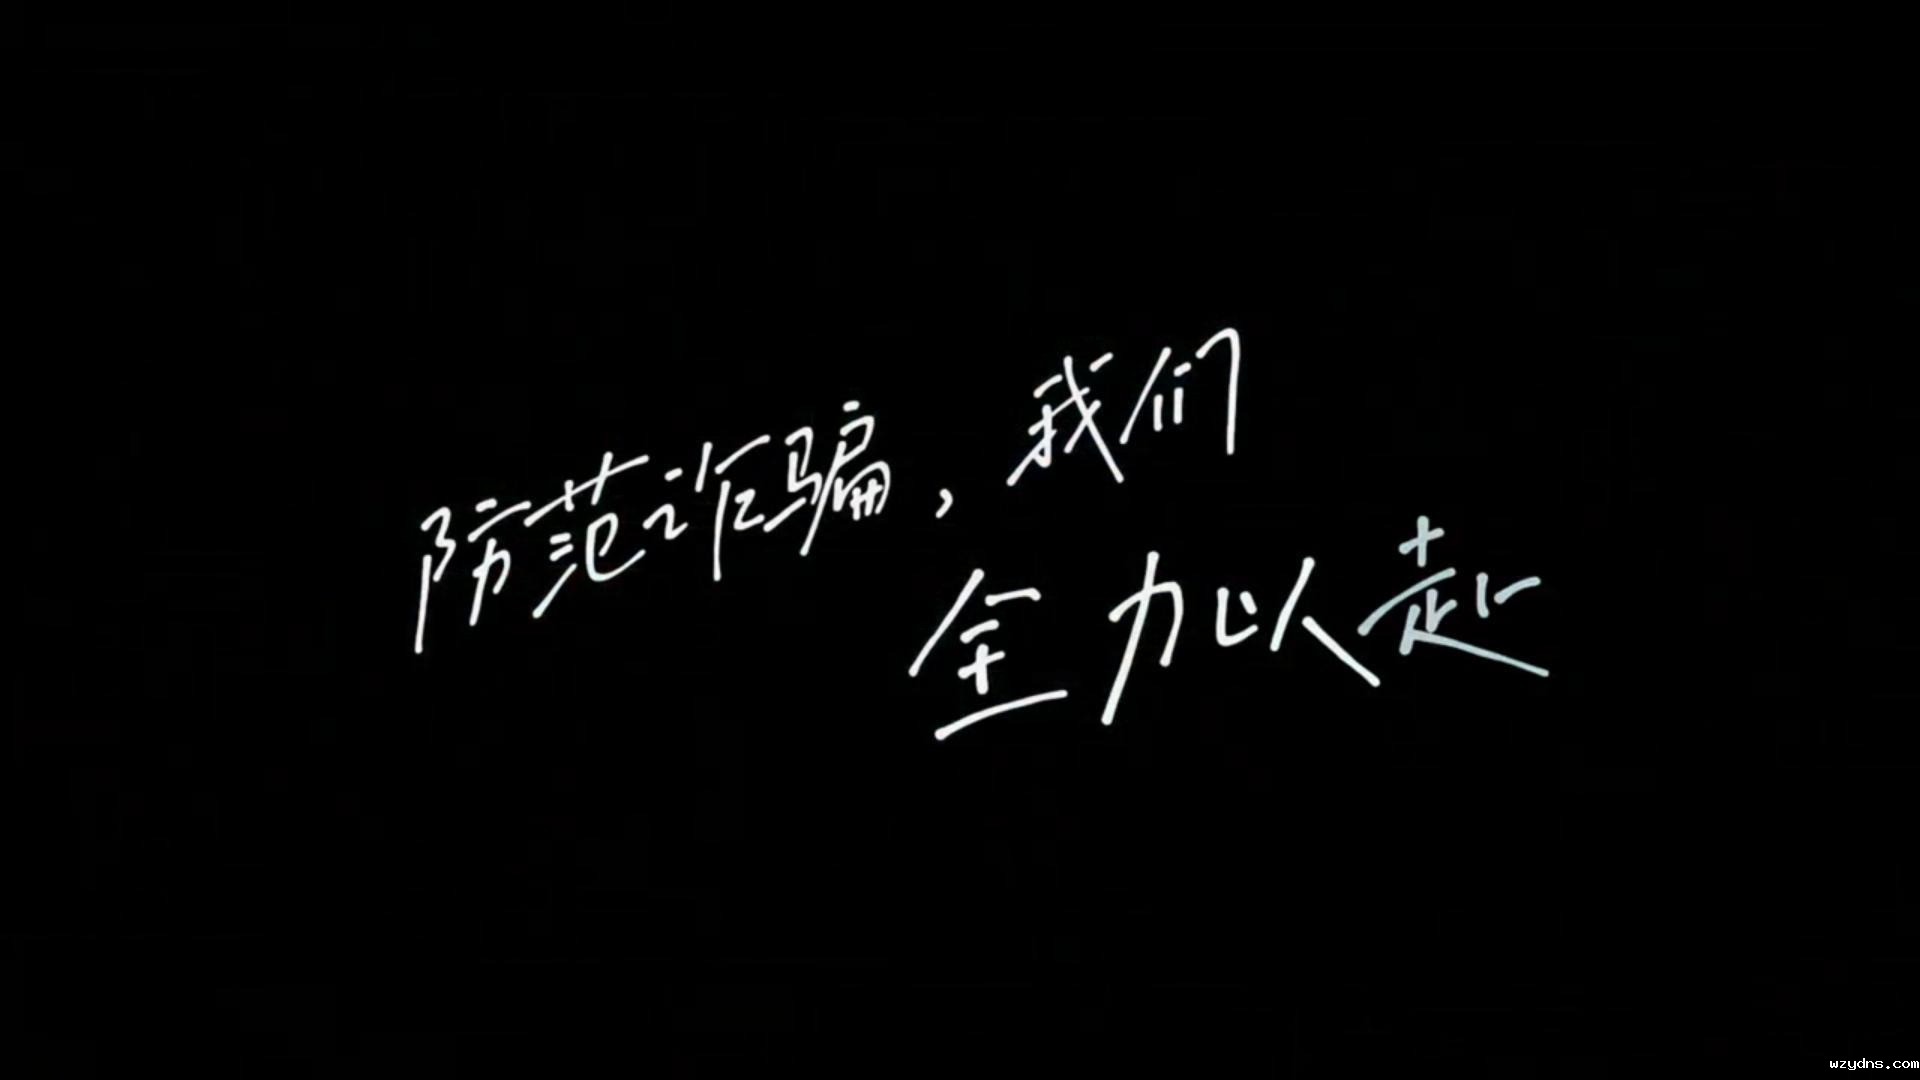 防范诈骗，我们
全力以赴
wzydns.com